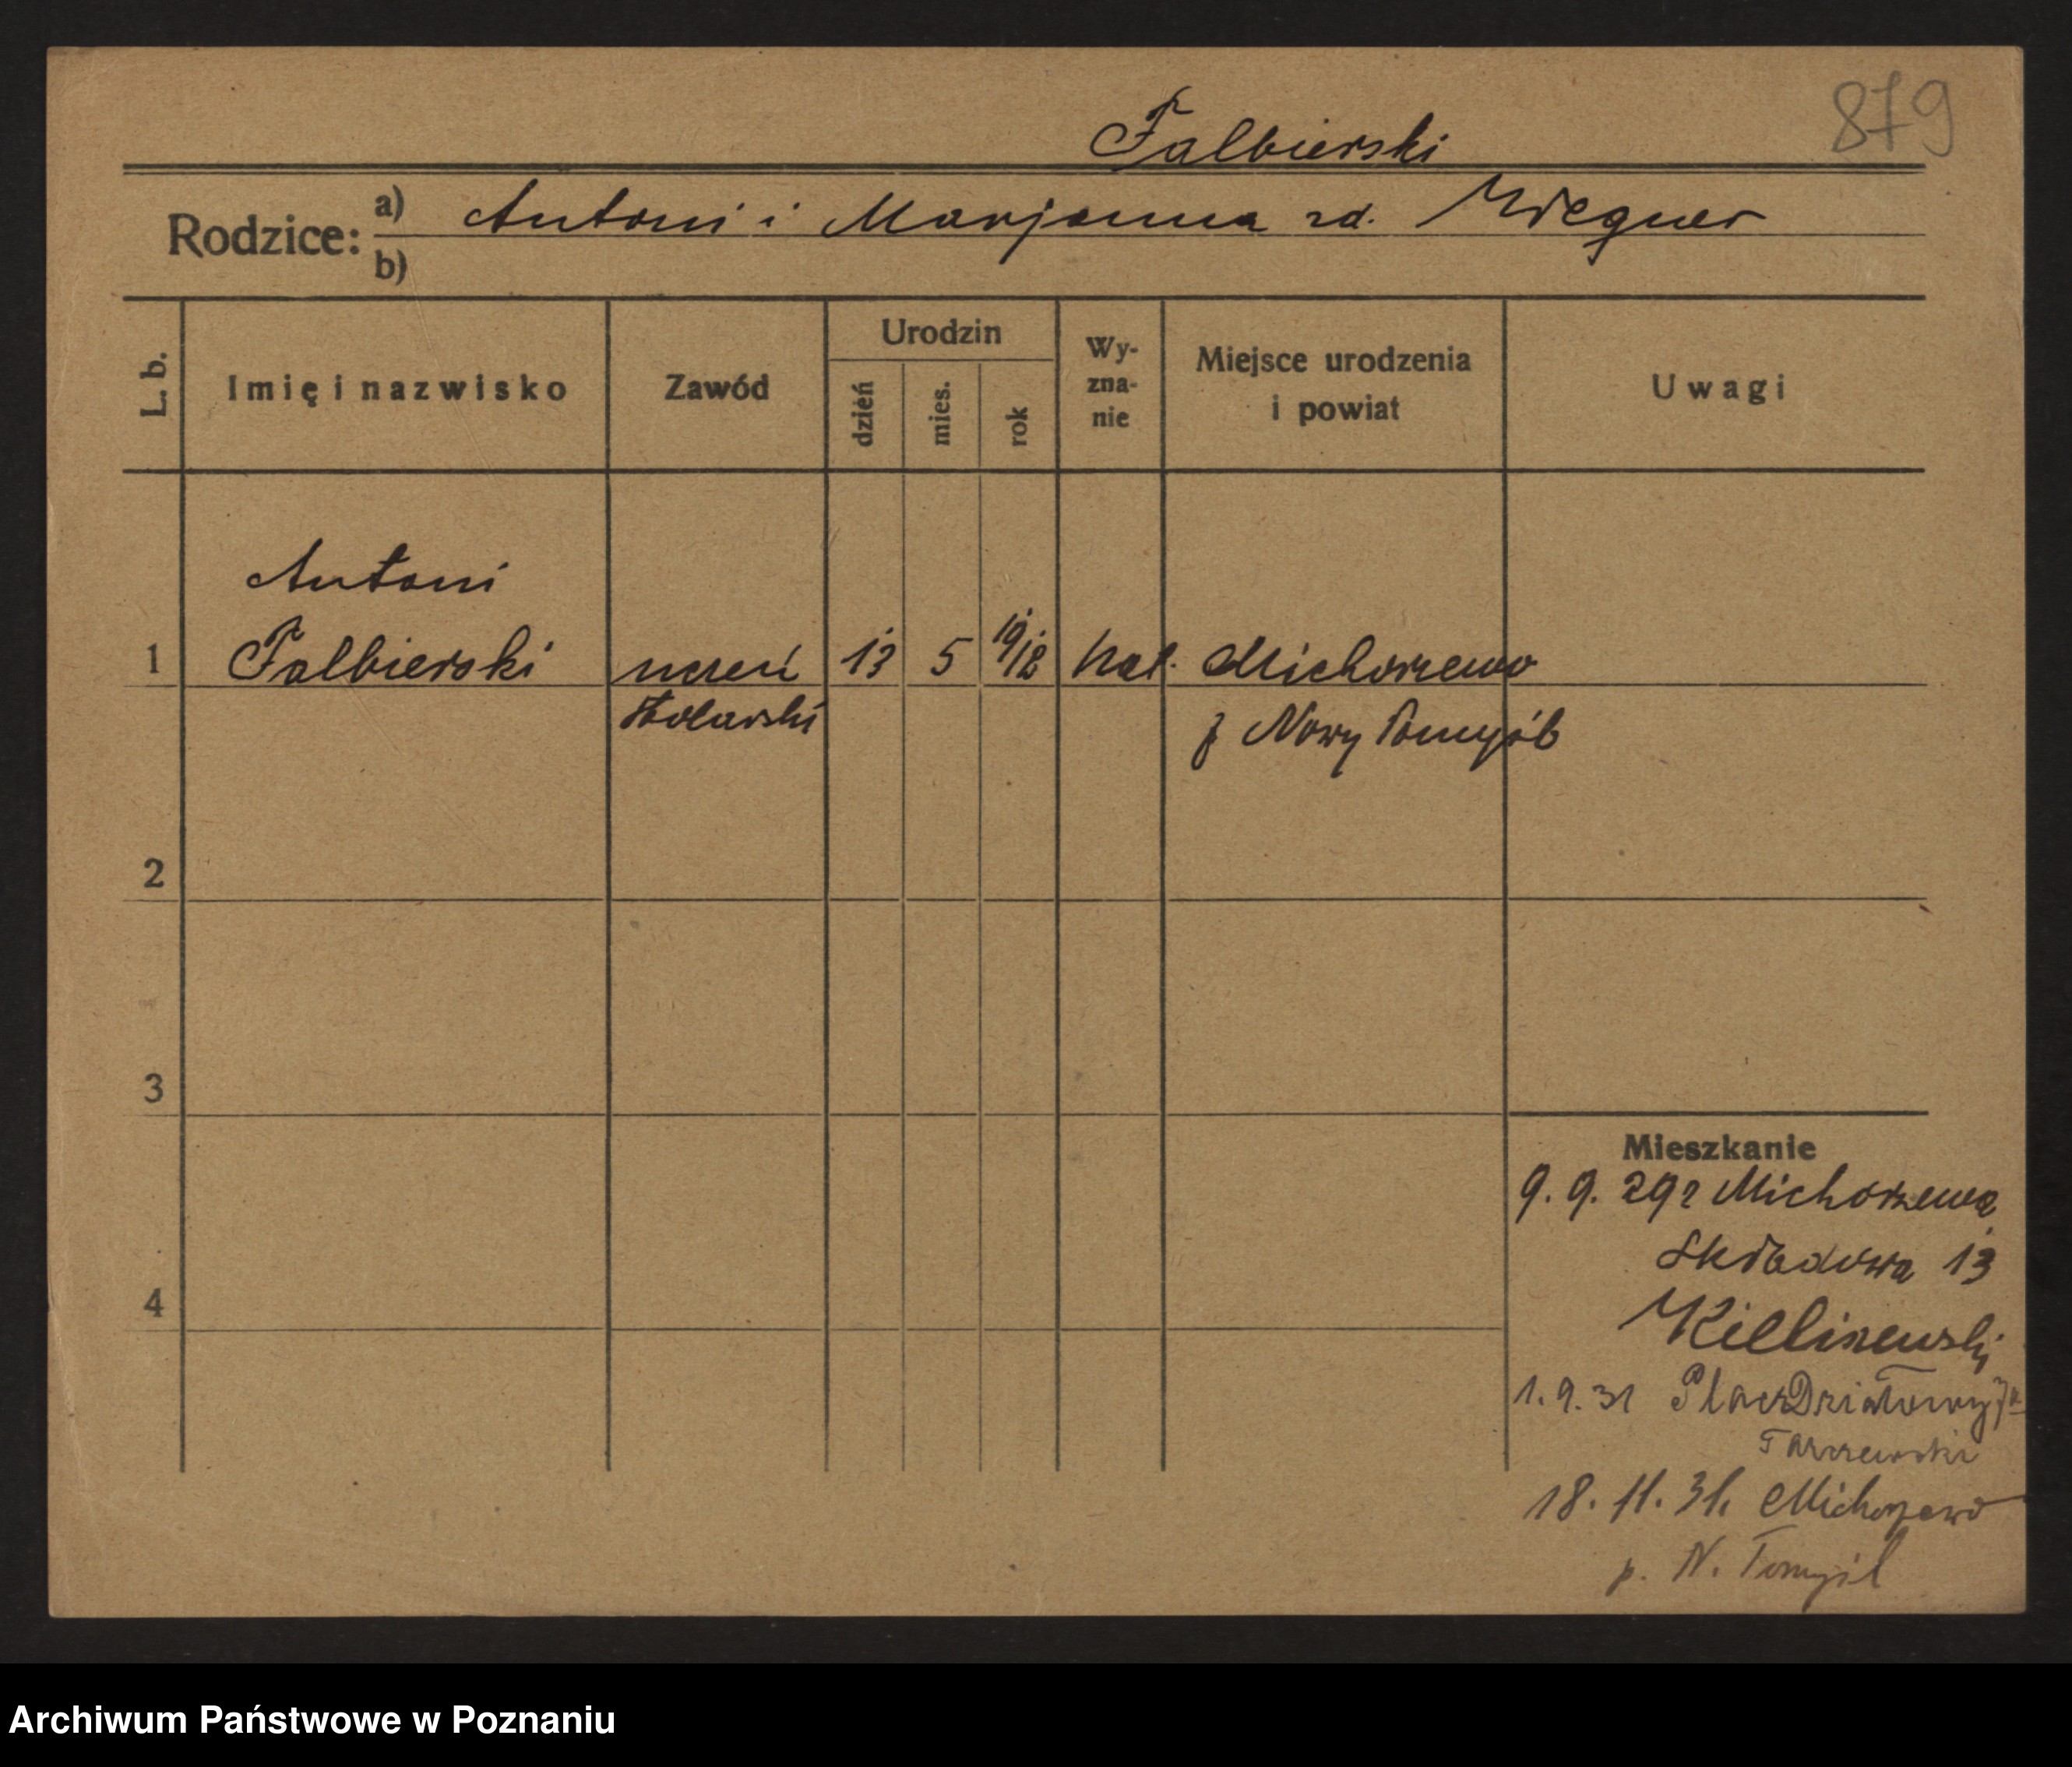 879
Falbierski
Rodzice: a) Antoni i Marjanna rd. Wiegner
b)
L. b. Imię i nazwisko Zawód Urodzin dzień mies. rok Wy-zna-nie Miejsce urodzenia i powiat Uwagi
Antoni
1 Falbierski uczeń 13 5 19/12 kat. Michorzewo
stolarski p Nowy Tomyśl
2
3
Mieszkanie
9. 9. 29 r Michorzewa
Składowa 13
4
1. 9. 31 Plac Działowy
18. 11. 31. Michorzewo
p. N. Tomyśl
Archiwum Państwowe w Poznaniu